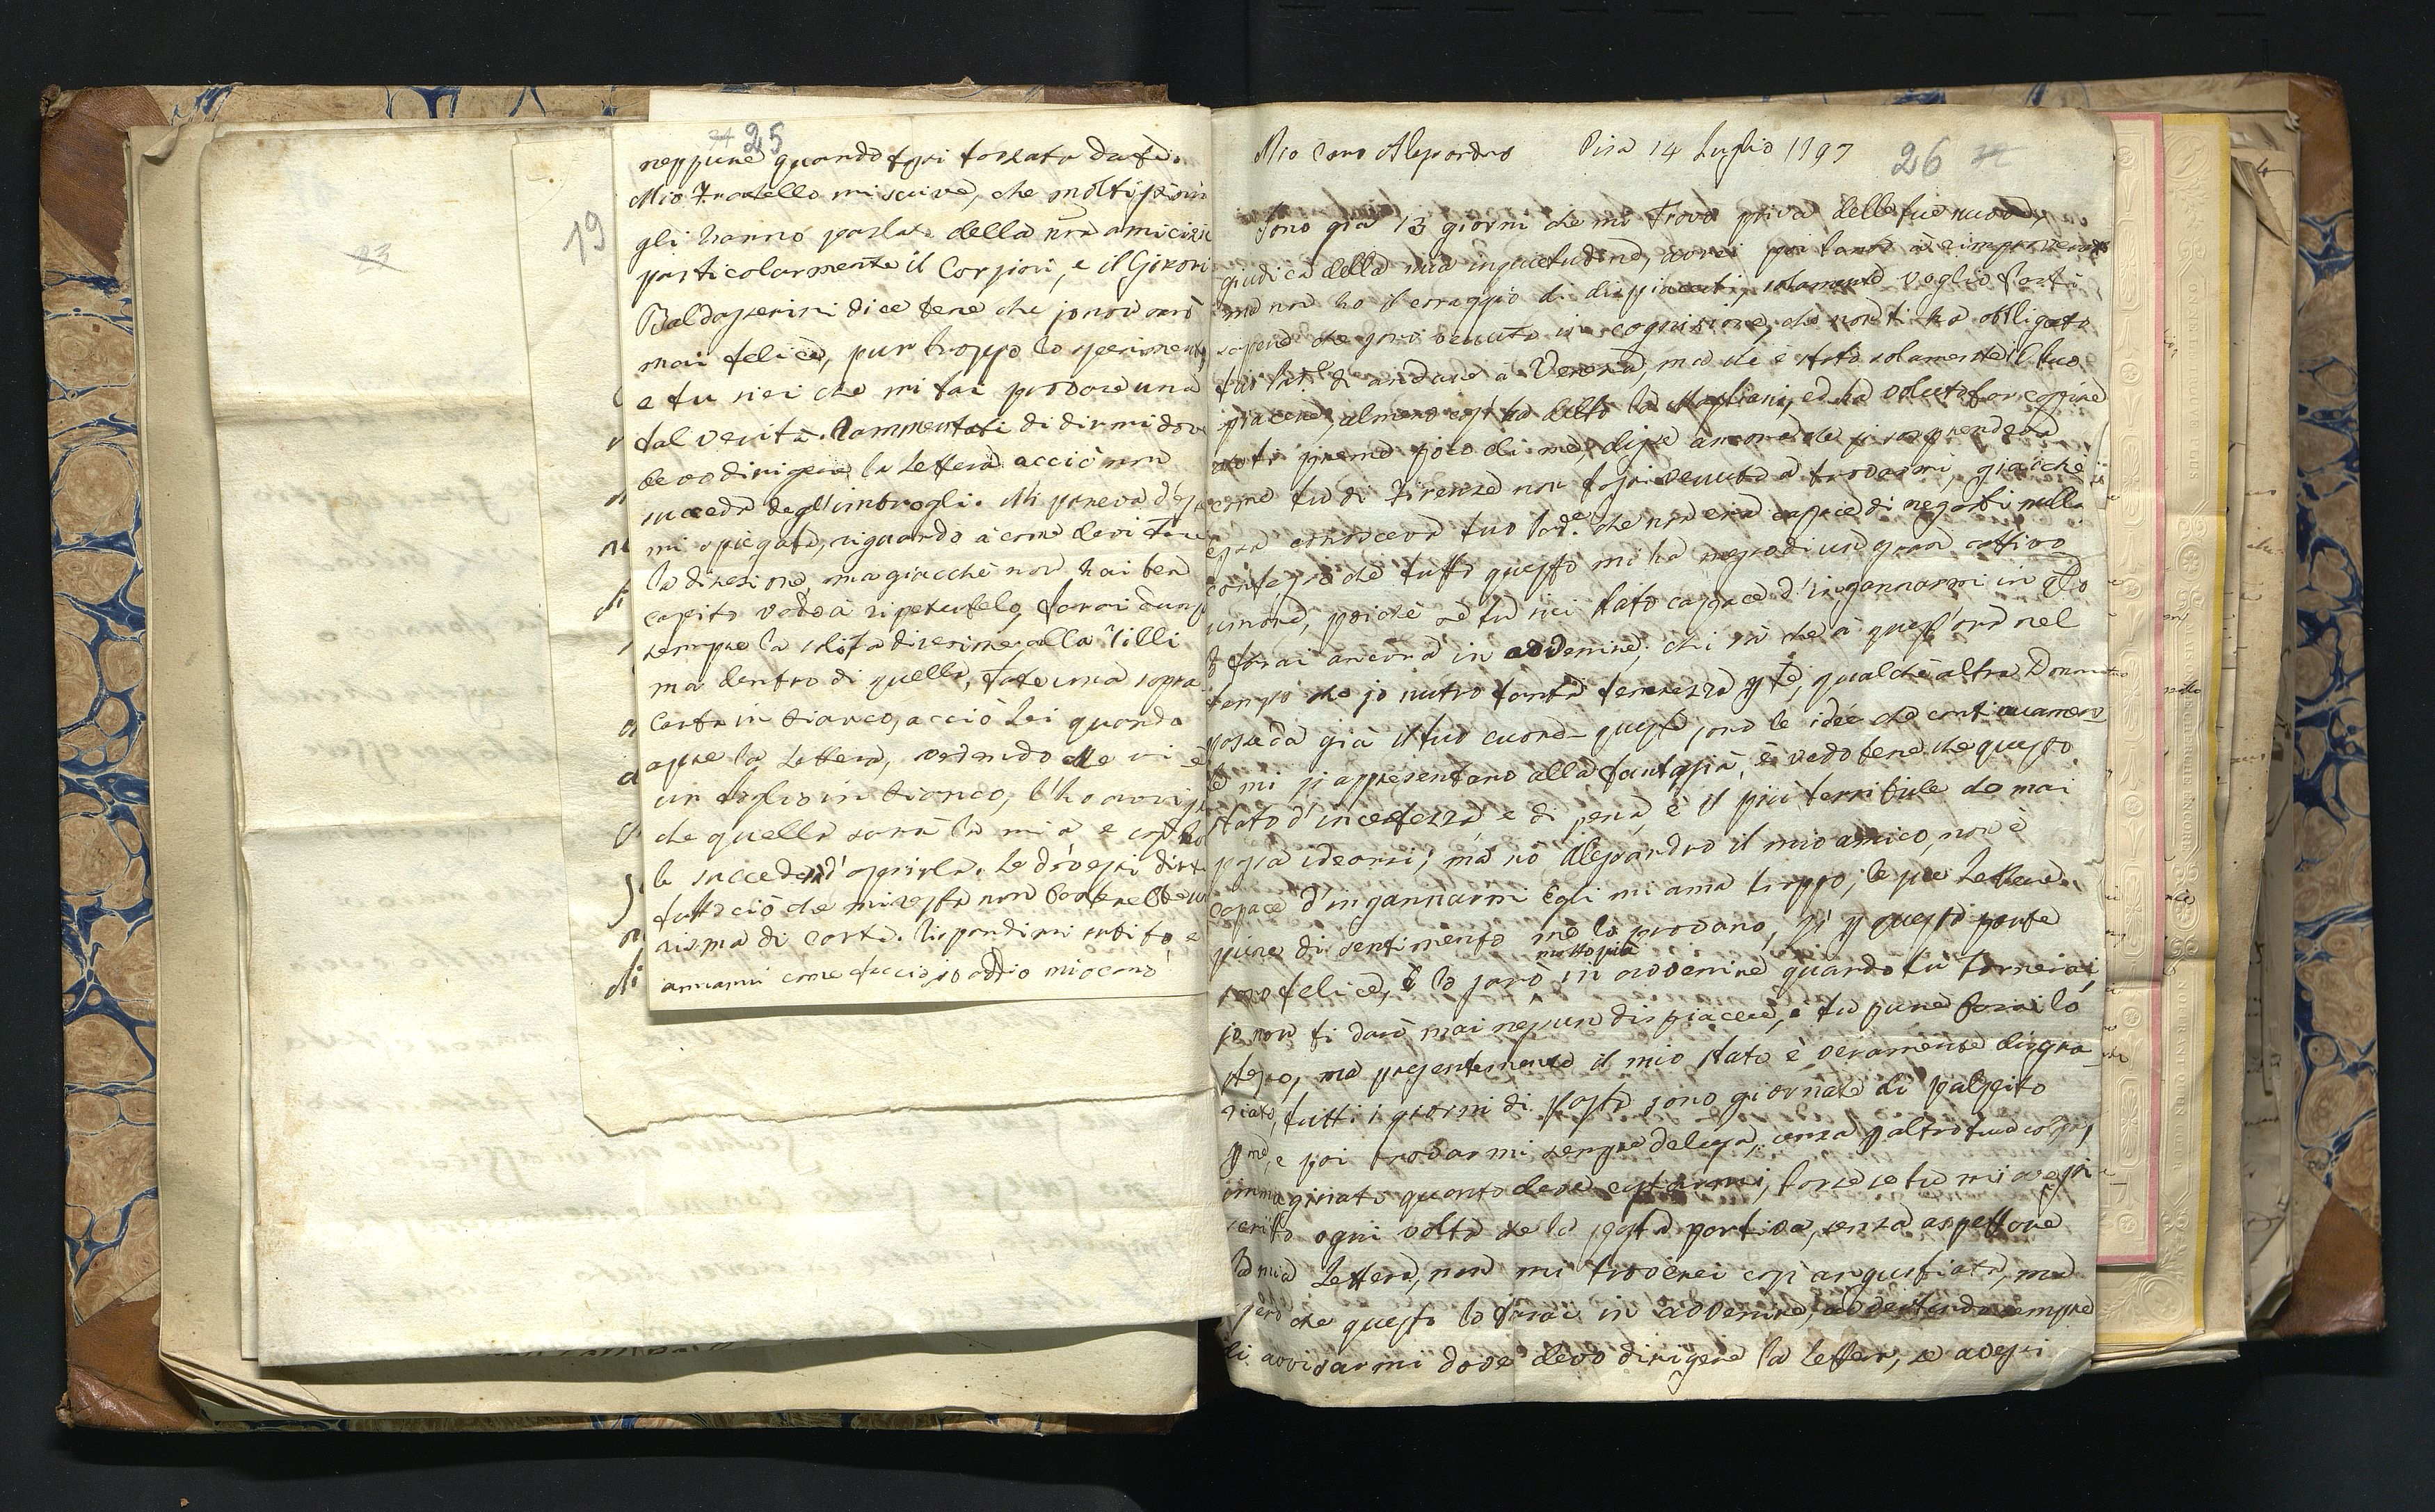 23
19
24 25
neppure quando fossi forzata da te.
Mio Fratello mi scrive, che molti
gli hanno parlato della nra amicizia
particolarmente il Corsioni, e il
dice bene che jo non sarò
mai felice, pur troppo lo
e tu siei che mi fai provare una
tal verità. Rammentati di dirmi dove
devo dirigere la Lettera acciò non
succeda degl'imbrogli. Mi pareva d'
mi spiegata, riguardo à come devi fare
la direzione, ma giacchè non hai ben
capito vado à ripetertelo, farai
sempre la solita direzione alla Tilli
ma dentro di quella, fate una sopra
Carta in bianco, acciò Lei quando
apre la Lettera, vedendo che vi è
un foglio in bianco, l'ho
che quella sarà la mia e così
le succederà d'aprirla. Se dovessi dirti
tutto ciò che mi resta non basterebbe
risma di carta. Rispondimi subito e
amami come faccio jo addio mio caro
Mio Caro Alessandro Pisa 14 Luglio 1797 26
Sono già 13 giorni che mi trovo priva delle tue nuove,
giudica della mia inquietudine, avrei poi tanto à rimproverarti
ma non ho il coraggio di dispiacerti, solamente voglio farti
sapere che sono venuta in cognizione, che non ti ha obbligato
tuo Pad.e di andare à Venezia, ma vi è stato solamente il tuo
piacere, almeno così ha detto la Magliani, ed ha voluto far capire
che ti preme poco di me, disse ancora che si sorprendeva
come tu di Firenze non fossi venuto à trovarmi, giacchè
essa conosceva tuo Pad.e che non era capace di negarti nulla
confesso che tutto questo mi ha messo di un gran cattivo
umore, poichè se tu siei stato capace d'ingannarmi in qto
lo farai ancora in avvenire; chi sà che à quest'ora nel
tempo che jo nutro tanta tenerezza p te, qualche altra Donna
possieda già il tuo cuore queste sono le idée che continuamen
te mi si appresentano alla fantasia, e vedo bene che questo
stato d'incertezza e di pena, è il più terribile che mai
possa idearsi; ma nò Alessandro il mio amico, non è
capace d'ingannarmi Egli mi ama troppo, le sue Lettere
piene di sentimento me lo provano, si p questa parte
molto più
sono felice, e lo sarò in avvenire quando tu tornerai,
jo non ti darò mai nessun dispiacere, e tu pure farai lo
stesso, ma presentemente il mio stato è veramente disgra
ziato, tutti i giorni di Posta sono giornate di palpito
p me, e poi trovarmi sempre delusa, senza p altro tua colpa,
immaginati quanto deve costarmi, forse se tu mi avessi
scritto ogni volta che la posta partiva, senza aspettare
la mia Lettera, non mi troverei così angustiata, ma
spero che questo lo farai in avvenire, avvertendo sempre
di avvisarmi dove devo dirigere la Lettera, se avessi